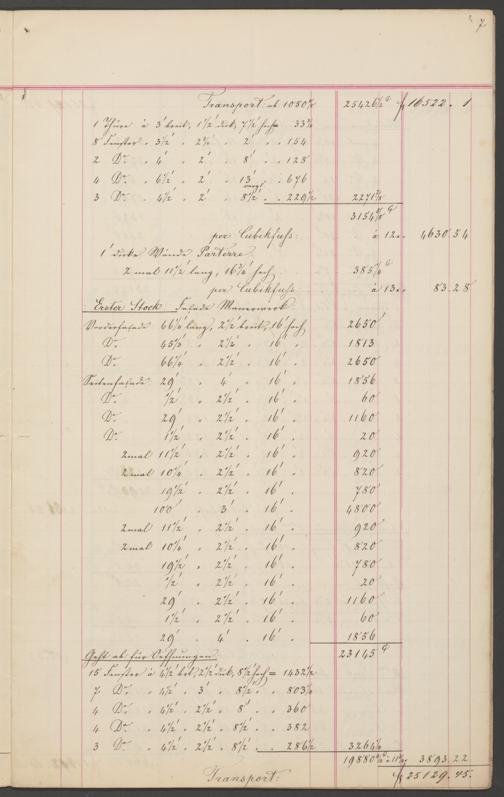 7
Transport ab 1050 25426½ f 16522. 1
1 Thüre à 3' breit, 1½' dick, 7½' hoch 33¾
8 Fenster " 3½' " 2¾' " 2' " " 154
2 Do. " 4' " 2' " 8' " " 128
4 Do. " 6½' " 2' " 13' " " 676
3 Do. " 4½' " 2' " 8½' " " 229½
per Cubikfuss à 12 4630.54
1' dicke Wände Parterre.
2 mal 11½' lang, 16¾' hoch, 385¼
per Cubikfuss à 13 83.28
Erster Stock Façade Mauerwerk
Vorderfaçade 66¼' lang, 2½' breit, 16' hoch 2650'
Do. 45⅓' " 2½' " 16' " 1813
Do. 66¼' " 2½' " 16' " 2650
Seitenfaçade 29' " 4' " 16' " 1856
Do. " 2½' " 16' " 60
Do. 29' " 2½' " 16' " 1160
Do. " 2½' " 16' " 20
2mal 11½' " 2½' " 16' " 920
2mal 10¼' " 2½' " 16' " 820
19½' " 2½' " 16' " 780
100' " 3' " 16' " 4800
2mal 11½' " 2½' " 16' " 920
2mal 10¼' " 2½' " 16' " 820
19½' " 2½' " 16' " 780
" 2½' " 16' " 20
29' " 2½' " 16' " 1160
1½' " 2½' " 16' " 60
29' " 4' " 16' " 1856
23145
Geht ab für Oeffnungen
15 Fenster à 4½' brt, 2½' dick, 8½' hoch = 1432½
7 Do. " 4½' " 3' " 8½' " " 803¼
4 Do. " 4½' " 2½' " 8' " 360
4 Do. " 4½' " 2½' " 8½' " 382
3 Do. " 4½' " 2½' " 8½' " " 286½ 3264¼
19880 3893.22
Transport: f 25129.45.